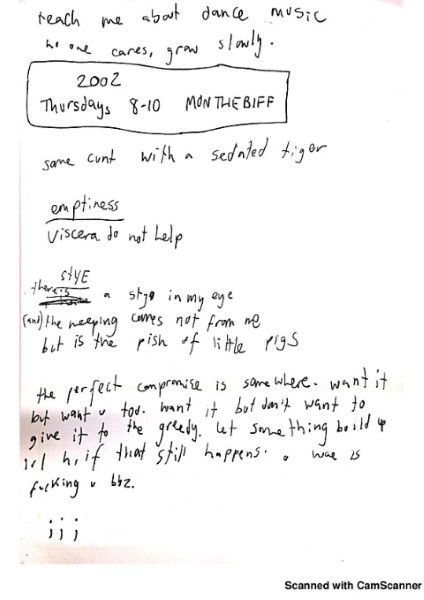 teach me about dance music
no one cares, grow slowly.
2002
Thursdays 8-10 MONTHEBIFF
some cunt with a sedated tiger
emptiness
Viscera do not help
STYE
there is a stye in my eye
(and) the weeping comes not from me
but is the pish of little pigs
the perfect compromise is somewhere. want it
but want u too. want it but don't want to
give it to the greedy. let something build up
irl h, if that still happens. wae is
fucking u bbz.
jjj
Scanned with CamScanner